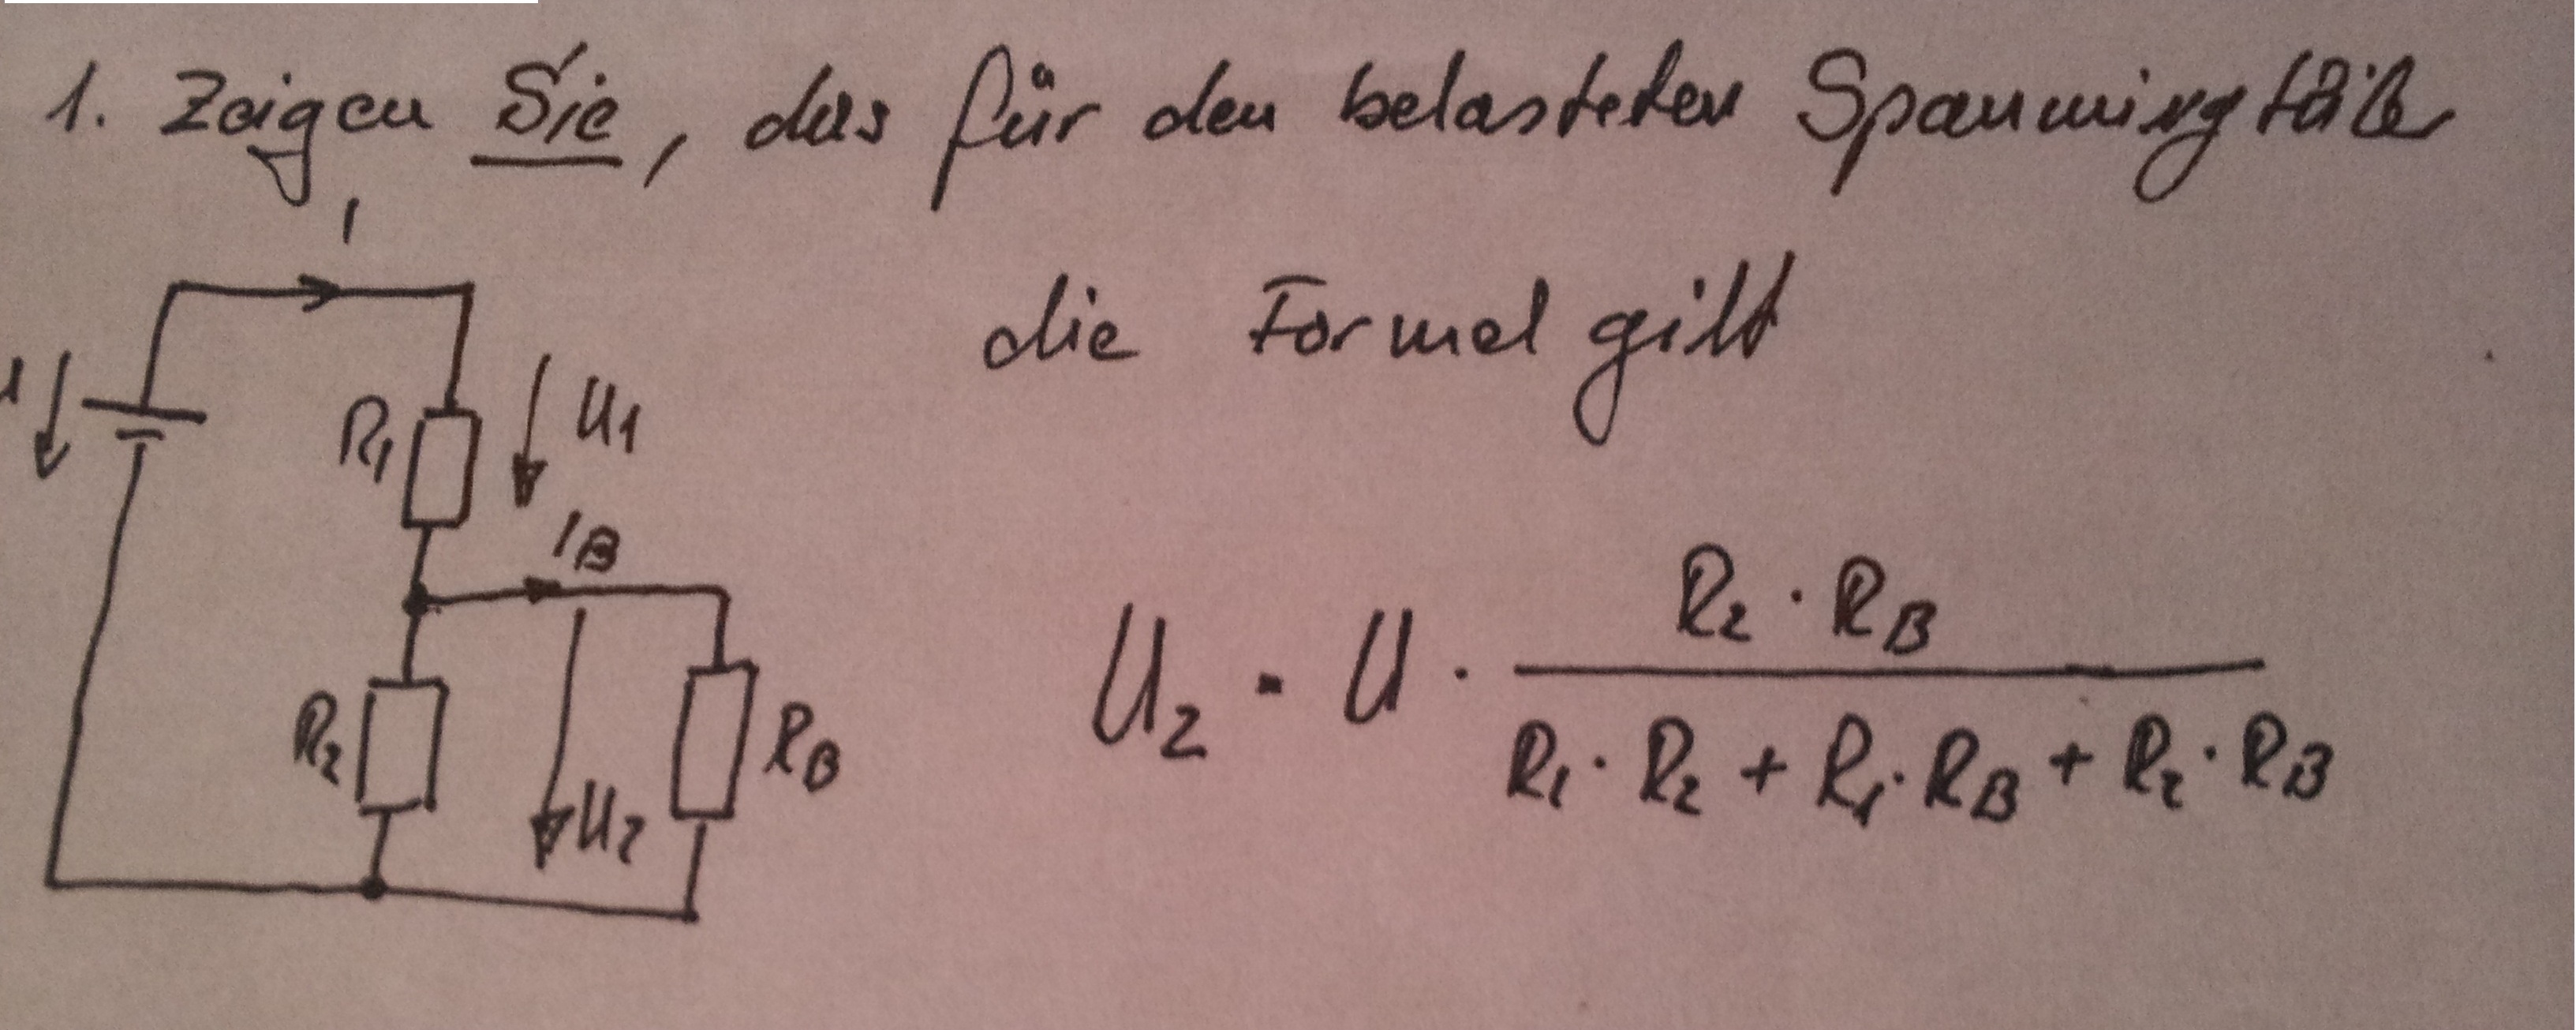 1. Zeigen Sie, das für den belasteten Spannungteiler
I
die Formel gilt
R1
U1
IB
R2 · RB
U2 = U ·
R1 · R2 + R1 · RB + R2 · RB
R2
RB
U2